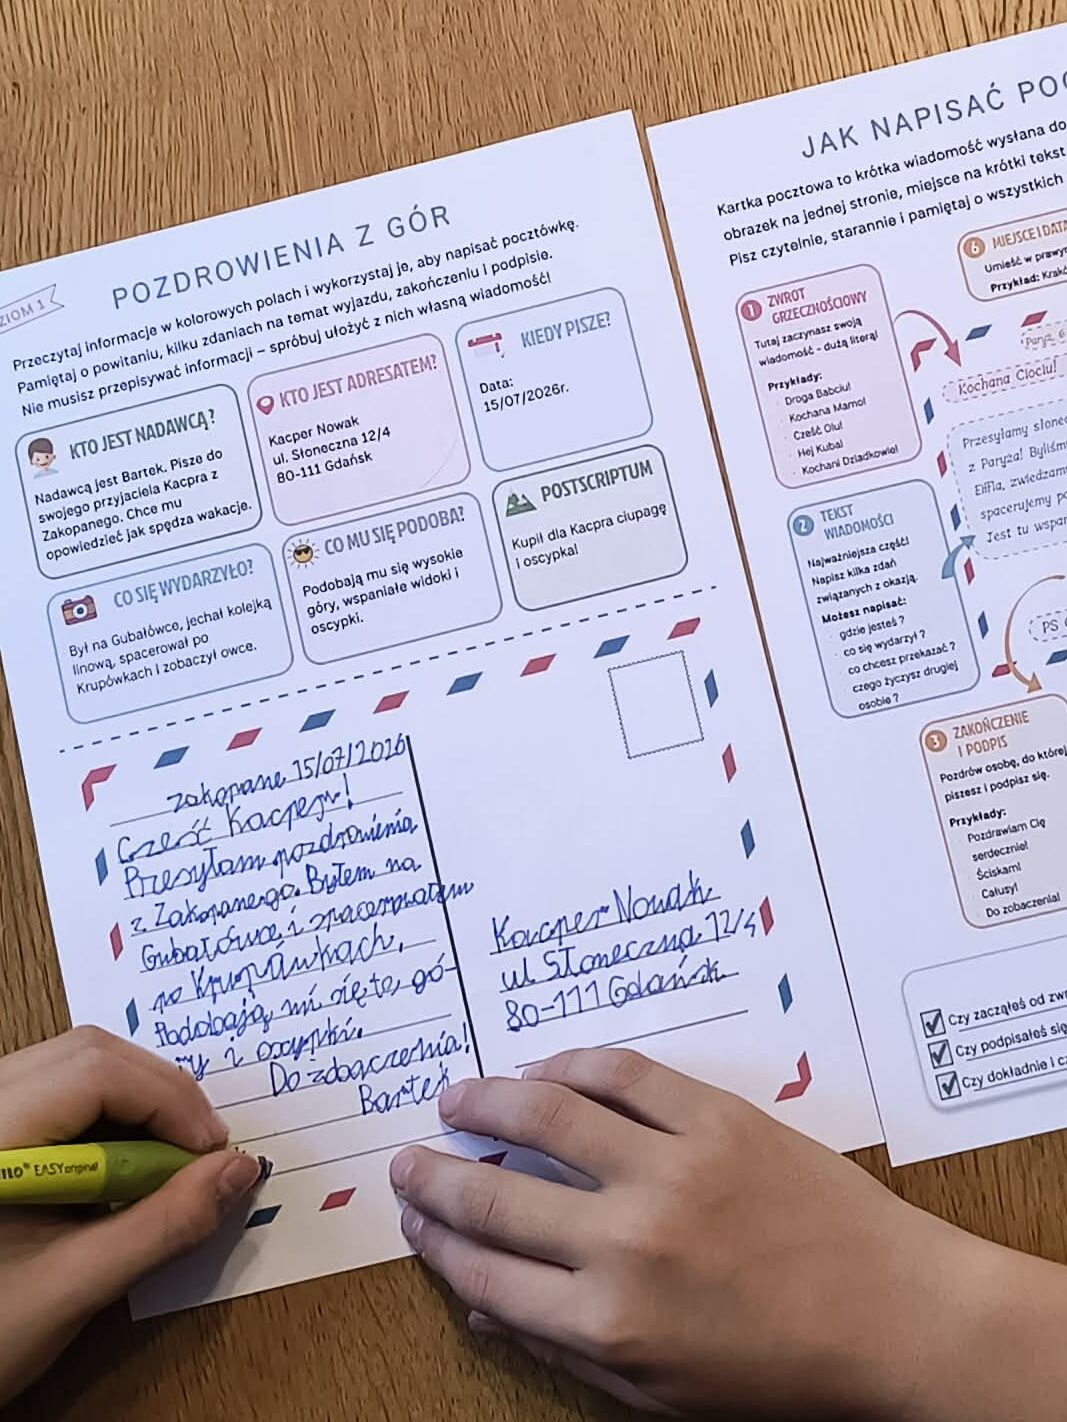 POZDROWIENIA Z GÓR
ZIOM 1
Przeczytaj informacje w kolorowych polach i wykorzystaj je, aby napisać pocztówkę.
Pamiętaj o powitaniu, kilku zdaniach na temat wyjazdu, zakończeniu i podpisie.
Nie musisz przepisywać informacji – spróbuj ułożyć z nich własną wiadomość!
KTO JEST NADAWCĄ?
Nadawcą jest Bartek. Pisze do
swojego przyjaciela Kacpra z
Zakopanego. Chce mu
opowiedzieć jak spędza wakacje.
KTO JEST ADRESATEM?
Kacper Nowak
ul. Słoneczna 12/4
80-111 Gdańsk
KIEDY PISZE?
Data:
15/07/2026r.
CO SIĘ WYDARZYŁO?
Był na Gubałówce, jechał kolejką
linową, spacerował po
Krupówkach i zobaczył owce.
CO MU SIĘ PODOBA?
Podobają mu się wysokie
góry, wspaniałe widoki i
oscypki.
POSTSCRIPTUM
Kupił dla Kacpra ciupagę
i oscypka!
Zakopane 15/07/2026
Cześć Kacper!
Przesyłam pozdrowienia
z Zakopanego. Byłem na
Gubałówce i spacerowałem
po Krupówkach.
Podobają mi się te gó-
ry i oscypki.
Do zobaczenia!
Bartek
Kacper Nowak
ul Słoneczna 12/4
80-111 Gdańsk
EASYoriginal
JAK NAPISAĆ POC
Kartka pocztowa to krótka wiadomość wysłana do
obrazek na jednej stronie, miejsce na krótki tekst
Pisz czytelnie, starannie i pamiętaj o wszystkich
1 ZWROT
GRZECZNOŚCIOWY
Tutaj zaczynasz swoją
wiadomość - dużą literą!
Przykłady:
Droga Babciu!
Kochana Mamo!
Cześć Olu!
Hej Kuba!
Kochani Dziadkowie!
6 MIEJSCE I DATA
Umieść w prawym
Przykład: Krakó
Paryż, 6
Kochana Ciociu!
Przesyłamy słonec
z Paryża! Byliśm
Eiffla, zwiedzam
spacerujemy po
Jest tu wspar
PS
2 TEKST
WIADOMOŚCI
Najważniejsza część!
Napisz kilka zdań
związanych z okazją.
Możesz napisać:
gdzie jesteś ?
co się wydarzył ?
co chcesz przekazać ?
czego życzysz drugiej
osobie ?
3 ZAKOŃCZENIE
I PODPIS
Pozdrów osobę, do której
piszesz i podpisz się.
Przykłady:
Pozdrawiam Cię
serdecznie!
Ściskam!
Całusy!
Do zobaczenia!
Czy zacząłeś od zwr
Czy podpisałeś się
Czy dokładnie i cz